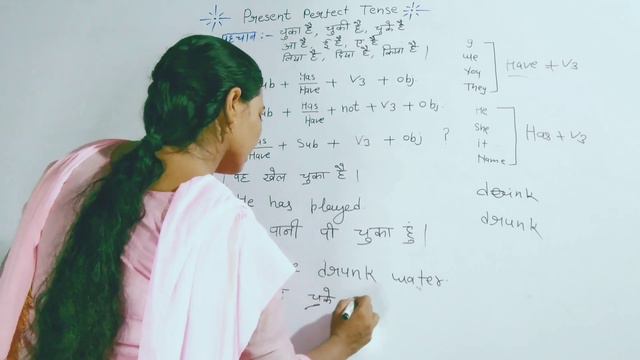 Present Perfect Tense
पहचान :- चुका है, चुकी है, चुके है
आ है, ई है, ए है
लिया है, दिया है, किया है |
Sub + Has/Have + V3 + Obj.
Sub + Has/Have + not + V3 + Obj.
Has/Have + Sub + V3 + Obj ?
वह खेल चुका है |
He has played
पानी पी चुका हुं |
drunk water.
चुके
I
We
You
They
Have + V3
He
She
it
Name
Has + V3
drink
drunk